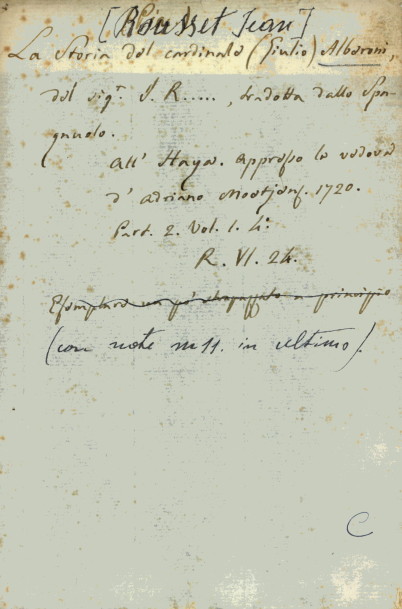 [Rousset Jean]
La Storia del cardinale (Giulio) Alberoni,
del sigr. I. R....., tradotta dallo Spa-
gnuolo.
All' Haya. Appresso la vedova
d' Adriano Moetjens. 1720.
Part. 2. Vol. 1. 4°.
R. VI. 24.
Esemplare un pò strapazzato in principio
(con note mss. in ultimo).
C